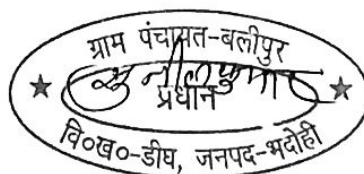 ग्राम पंचायत-बलीपुर
सुनील कुमार
प्रधान
वि०ख०-डीघ, जनपद-भदोही